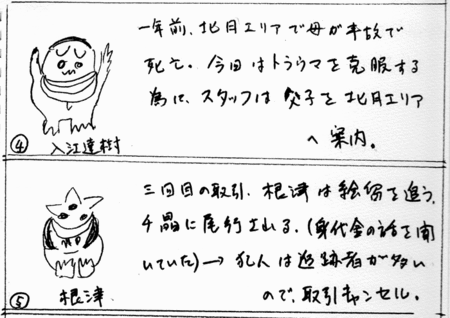 一年前、北月エリアで母が事故で
死亡。今回はトラウマを克服する
為に、スタッフは父子を北月エリア
へ案内。
④
入江達樹
三回目の取引、根津は絵留を追う、
千晶に尾行される。(身代金の話を聞
いていた)→犯人は追跡者が多い
ので、取引キャンセル。
⑤
根津